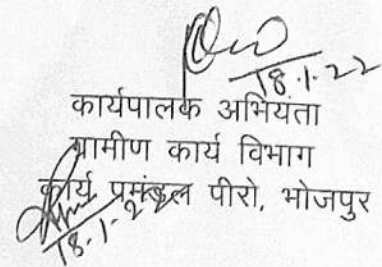 18.1.22
कार्यपालक अभियंता
ग्रामीण कार्य विभाग
कार्य प्रमंडल पीरो, भोजपुर
18.1.22